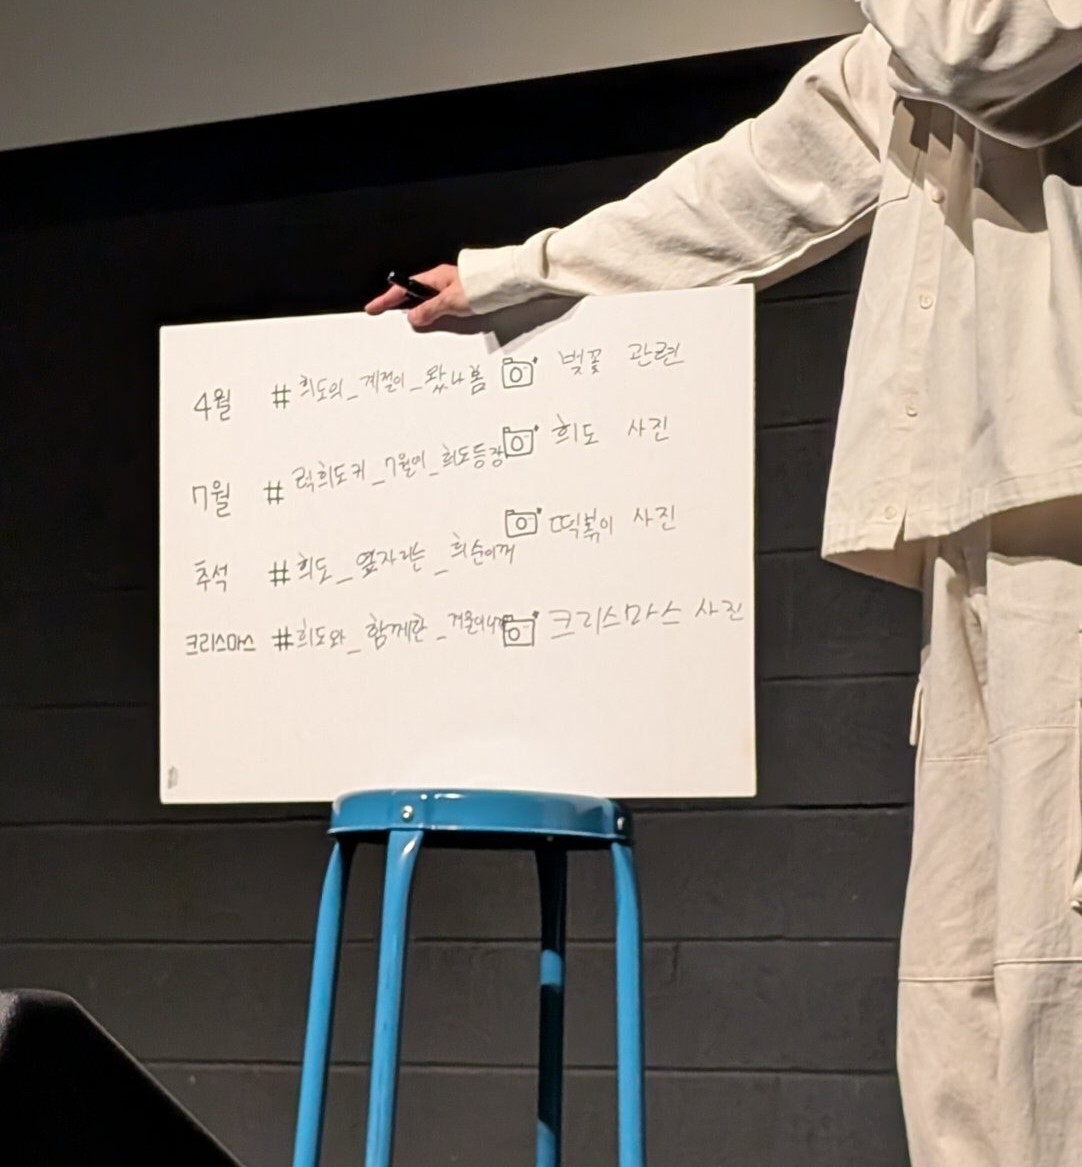 4월 #희도의_계절이_왔나봄 벚꽃 관련
7월 #럭희도키_7월이_희도등장 희도 사진
추석 #희도_옆자리는_희순이꺼 떡볶이 사진
크리스마스 #희도와_함께한_겨울이니까 크리스마스 사진